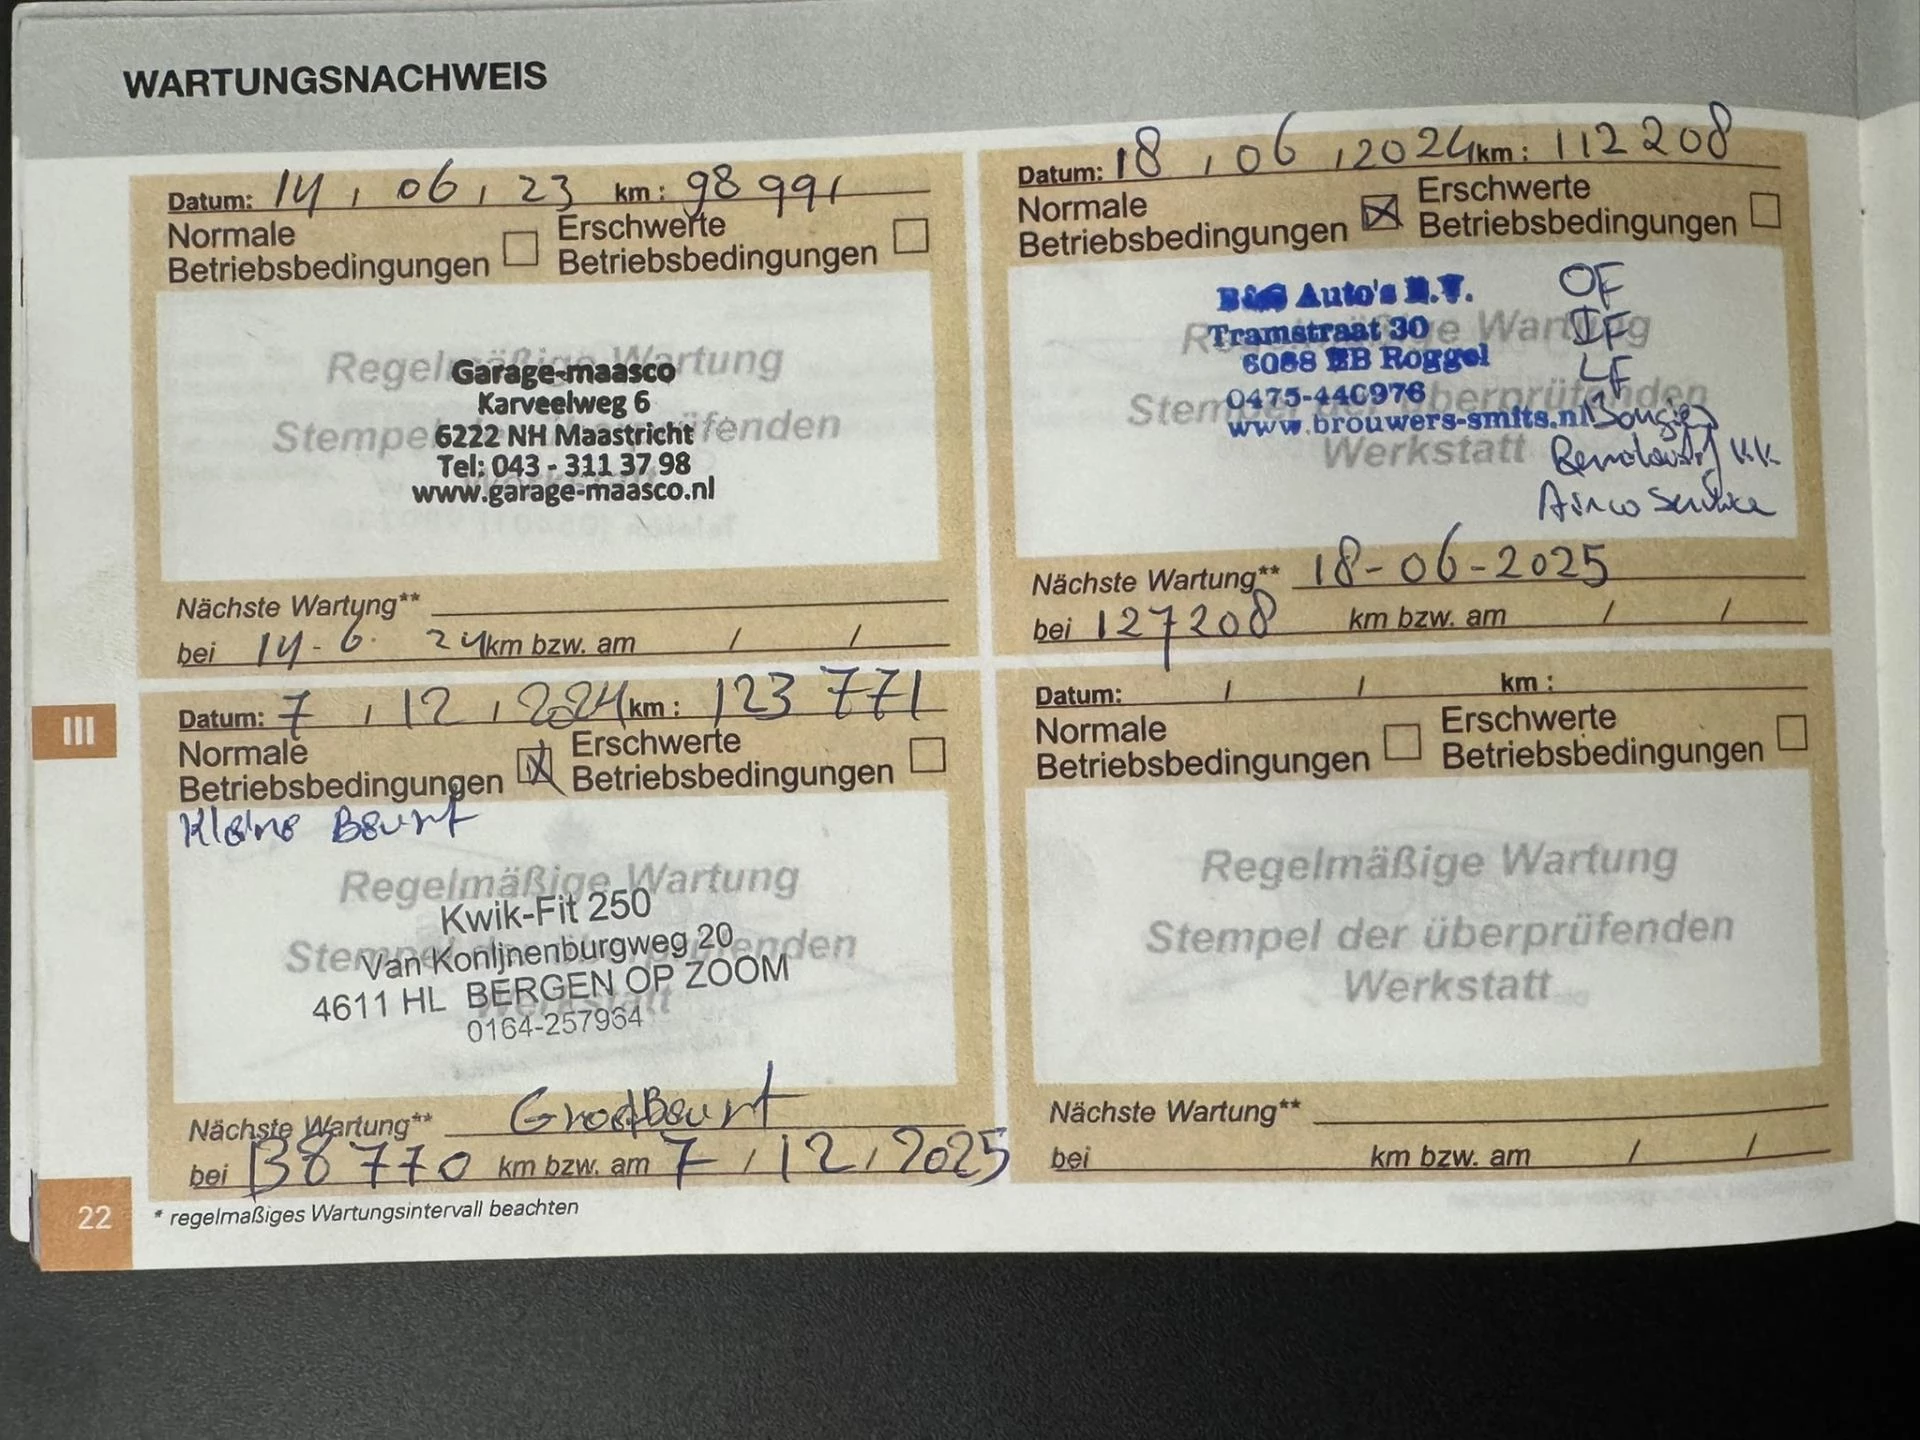 WARTUNGSNACHWEIS
Datum: 14 / 06 / 23 km: 98 991
Normale Betriebsbedingungen
Erschwerte Betriebsbedingungen
Regelmäßige Wartung
Stempel der überprüfenden
Werkstatt
Garage-maasco
Karveelweg 6
6222 NH Maastricht
Tel: 043 - 311 37 98
www.garage-maasco.nl
Nächste Wartung**
bei 14-6- 24 km bzw. am / /
Datum: 18 / 06 / 2024 km: 112208
Normale Betriebsbedingungen
Erschwerte Betriebsbedingungen
Regelmäßige Wartung
Stempel der überprüfenden
Werkstatt
Auto's
Tramstraat 30
6088 EB Roggel
0475-440976
www.brouwers-smits.nl
OF
IF
LF
Bougies
KK
Airco Service
Nächste Wartung** 18-06-2025
bei 127208 km bzw. am / /
III
Datum: 7 / 12 / 2024 km: 123 771
Normale Betriebsbedingungen
Erschwerte Betriebsbedingungen
Kleine Beurt
Regelmäßige Wartung
Stempel der überprüfenden
Werkstatt
Kwik-Fit 250
Van Konijnenburgweg 20
4611 HL BERGEN OP ZOOM
0164-257964
Nächste Wartung** Groot Beurt
bei 138770 km bzw. am 7 / 12 / 2025
Datum: / / km:
Normale Betriebsbedingungen
Erschwerte Betriebsbedingungen
Regelmäßige Wartung
Stempel der überprüfenden
Werkstatt
Nächste Wartung**
bei km bzw. am / /
22
* regelmaßiges Wartungsintervall beachten